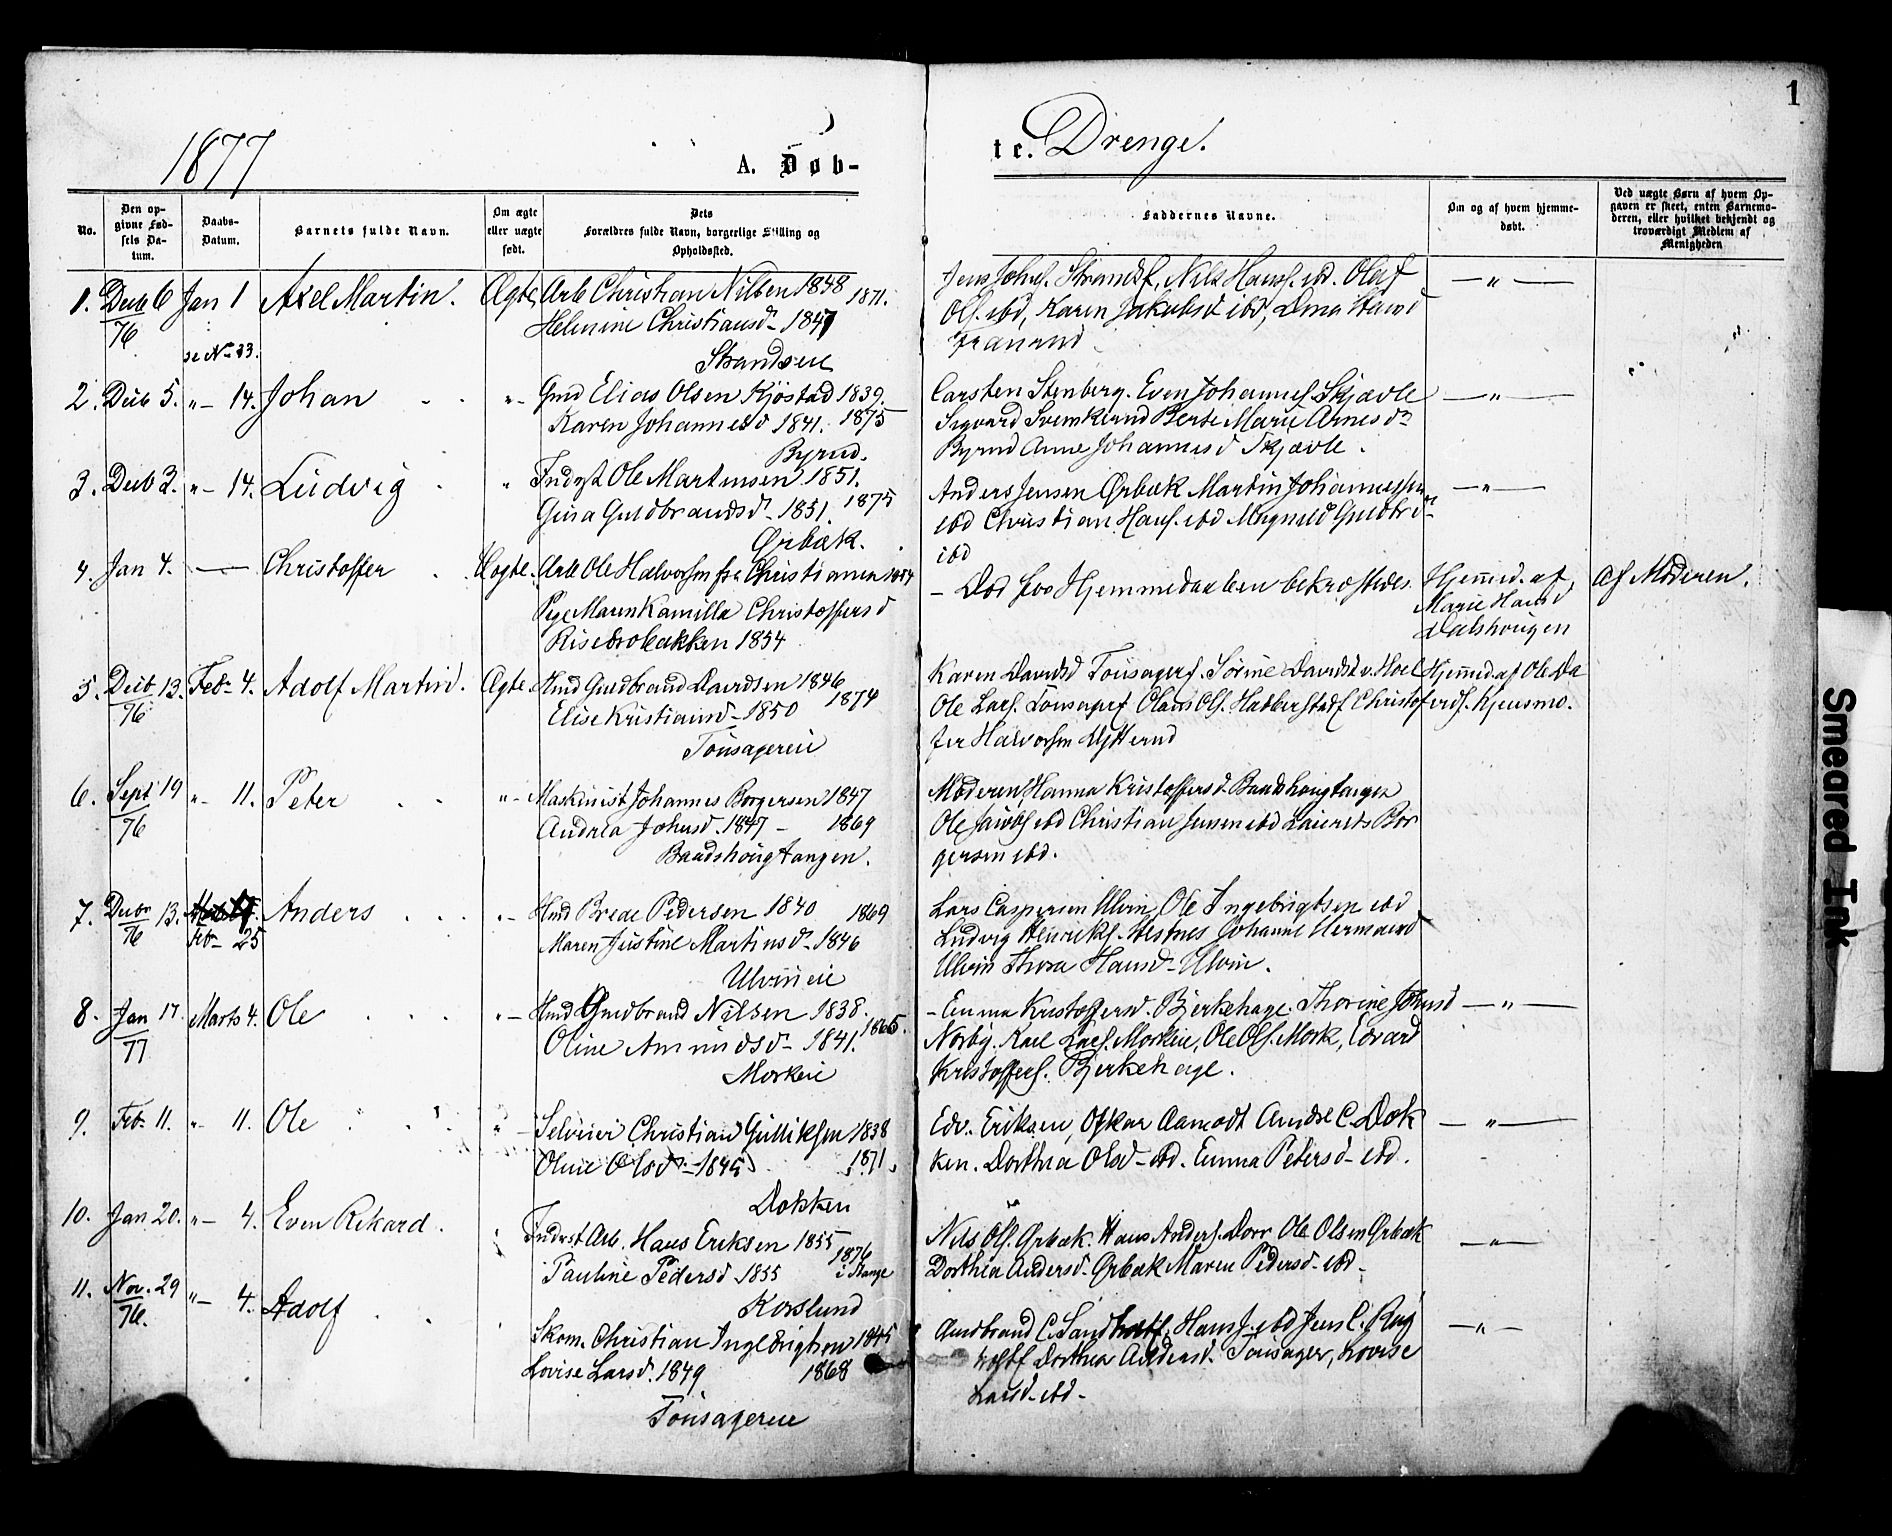 1
1877
A. Døb-
te. Drenge.
No.
Den op-
givne Fød-
sels Da-
tum.
Daabs-
Datum.
Barnets fulde Navn.
Om ægte
eller uægte
født.
Dets
Forældres fulde Navn, borgerlige Stilling og
Opholdssted.
Faddernes Navne.
Om og af hvem hjemme-
døbt.
Ved uægte Børn af hvem Op-
gaven er skeet, enten Barnemo-
deren, eller hvilket bekjendt og
troværdigt Medlem af
Menigheden
1. Decb 6 Jan 1 Axel Martin. Ægte Arb Christian Nilsen 1848 1871.
76 Helmine Christiansd- 1847
se No 33. Strandseie
Olaf
Ols. ibd, Karen Jakobsd ibd,
2. Decb 5. "- 14. Johan "- Gmd Elias Olsen Kjøstad 1839.
Karen Johannesd 1841. 1875
Byrud.
Carsten Stenberg. Even Johannes. Skjævle -"-
Sigvard Berte Marie Arnesd
Byrud Anne Johannesd Skjævle.
3. Decb 3. "- 14. Ludvig " Indrst Ole Martinsen 1851.
Gina Guldbrandsd- 1851. 1875
Ørbæk.
Anders Jensen Ørbæk Martin Johannessen -"-
ibd Christian Hans. ibd
ibd
4. Jan 4. — Christoffer Uægte. Arb Ole Halvorsen fra Christiania 1854
Pige Maren Kamilla Christoffersd
Risebrobakken 1854
- Død for Hjemmedaaben bekræftedes. Hjemmed. af Marie Hansd Dalshougen Af Moderen.
5. Decb 13. Feb- 4. Adolf Martin. Ægte. Hmd Guldbrand Davidsen 1846
76 Elise Kristiansd- 1850 1874
Tousagereie
Karen Davidsd Tousager. Sørine Davidsd v. Hoel Hjemmed af Ole Da
Ole Lars. Tousager Olaus Ols. Christof
fer Halvorsen
6. Sept 19 "- 11. Peter "- Maskinist Johannes Borgersen 1847
76 Andrea Johnsd. 1847 - 1869
Baadshougtangen.
Moderen, Hanna Kristoffersd Baadshougtangen
Ole Jacobs. ibd Christian Jensen ibd Laurits Bor
gersen ibd.
7. Decbr 13. Feb- 25 Anders "- Hmd Brede Pedersen 1840 1869
76 Maren Justine Martinsd- 1846
Ulvineie
Lars Caspersen Ulvin, Ole Ingebrigtsen ibd
Ludvig Henriks. Vestnes Johanne Hermansd
Ulvin Thora Hansd- Ulvin.
8. Jan 17. Marts 4. Ole "- Hmd Gundbrand Nilsen 1838.
77 Oline Amundsd- 1841. 1865.
Morkeie
- Emma Kristoffersd. Bjerkehage. Thorine Johnsd -"-
Norby. Karl Lars. Morkeie, Ole Ols. Mork, Edvard
Kristoffers. Bjerkehage.
9. Feb- 11. "- 11. Ole "- Selveier Christian Gulliksen 1838
Oline Olsd- 1845 1871.
Dokken
Edv. Eriksen, Oskar Aamodt Andre C. Dok -"-
ken. Dorthea Olsd- ibd. Emma Petersd- ibd.
10. Jan 20. "- 4. Even Rikard. Indrst Arb. Hans Eriksen 1855
1876
Pauline Pedersd 1855 i Stange
Korslund
Nils Ols. Ørbæk. Hans Anders. Dorr Ole Olsen Ørbæk -"-
Dorthea Andersd. Ørbæk Maren Pedersd- ibd-
11. Nov. 29 "- 4. Adolf Skom. Christian Ingebrigtsen 1845
76. Lovise Larsd. 1849 1868
Tousagereie
Gudbrand C. Hans J. ibd Jens C. -"-
Dorthea Andersd. Tousager, Lovise
Larsd- ibd-
Smeared Ink